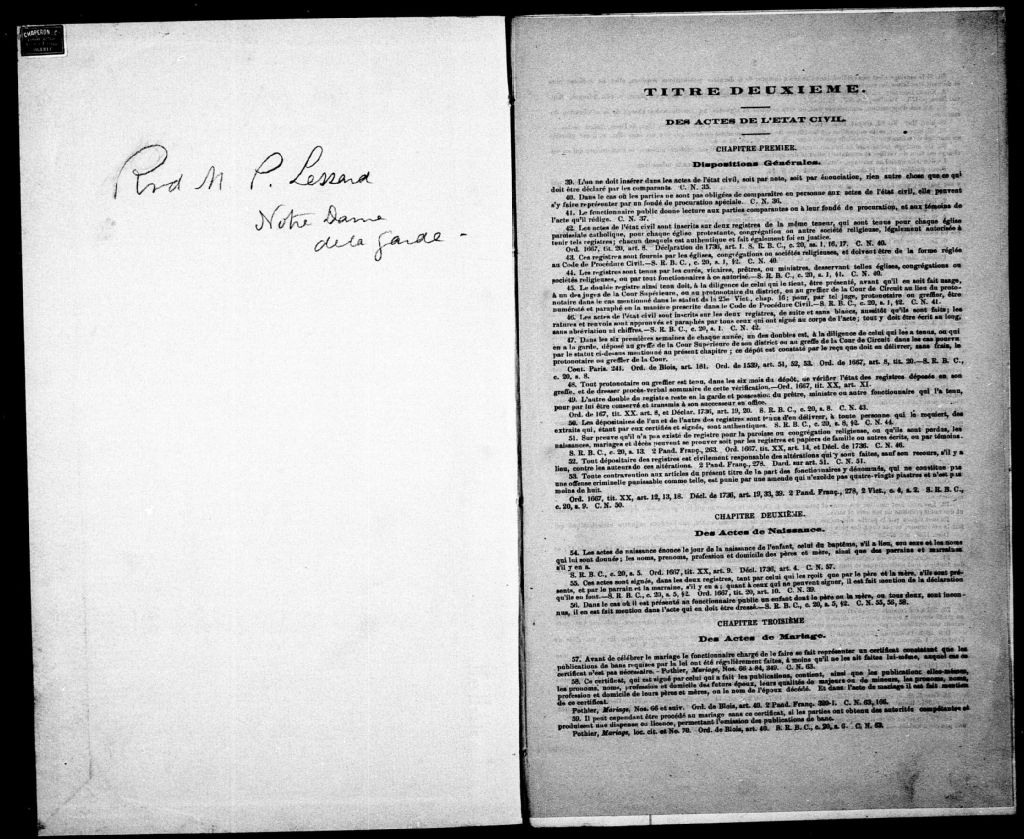 CHAPERON
Rvd M P. Lessard
Notre Dame
de la garde -
TITRE DEUXIEME.
DES ACTES DE L'ETAT CIVIL.
CHAPITRE PREMIER.
Dispositions Générales.
39. L'on ne doit insérer dans les actes de l'état civil, soit par note, soit par énonciation, rien autre chose que ce qui
doit être déclaré par les comparants. C. N. 35.
40. Dans le cas où les parties ne sont pas obligées de comparaître en personne aux actes de l'état civil, elle peuvent
s'y faire représenter par un fondé de procuration spéciale. C. N. 36.
41. Le fonctionnaire public donne lecture aux parties comparantes ou à leur fondé de procuration, et aux témoins de
l'acte qu'il rédige. C. N. 37.
42. Les actes de l'état civil sont inscrits sur deux registres de la même teneur, qui sont tenus pour chaque église
paroissiale catholique, pour chaque église protestante, congrégation ou autre société religieuse, légalement autorisée à
tenir tels registres; chacun desquels est authentique et fait également foi en justice.
Ord. 1667, tit. 20, art. 8. Déclaration de 1736, art. 1. S. R. B. C., c. 20, ss. 1, 16, 17. C. N. 40.
43. Ces registres sont fournis par les églises, congrégations ou sociétés religieuses, et doivent être de la forme réglée
au Code de Procédure Civil.—S. R. B. C., c. 20, s. 1, §2. C. N. 40.
44. Les registres sont tenus par les curés, vicaires, prêtres, ou ministres, desservant telles églises, congrégations ou
sociétés religieuses, ou par tout fonctionnaires à ce autorisé.—S. R. B. C., c. 20, s. 1, §1. C. N. 40.
45. Le double registre ainsi tenu doit, à la diligence de celui qui le tient, être présenté, avant qu'il en soit fait usage,
à un des juges de la Cour Supérieure, ou au protonotaire du district, ou au greffier de la Cour de Circuit au lieu du proto-
notaire dans le cas mentionné dans le statut de la 25e Vict., chap. 16; pour, par tel juge, protonotaire ou greffier, être
numéroté et paraphé en la manière prescrite dans le Code de Procédure Civil.—S. R. B. C., c. 20, s. 1, §2. C. N. 41.
46. Les actes de l'état civil sont inscrits sur les deux registres, de suite et sans blancs, aussitôt qu'ils sont faits; les
ratures et renvois sont approuvés et paraphés par tous ceux qui ont signé au corps de l'acte; tout y doit être écrit au long,
sans abréviation ni chiffres.—S. R. B. C., c. 20, s. 1. C. N. 42.
47. Dans les six premières semaines de chaque année, un des doubles est, à la diligence de celui qui les a tenus, ou qui
en a la garde, déposé au greffe de la Cour Supérieure de son district ou au greffe de la Cour de Circuit dans les cas pourvus
par le statut ci-dessus mentionné au présent chapitre; ce dépôt est constaté par le reçu que doit en délivrer, sans frais, le
protonotaire ou greffier de la Cour.
Cout. Paris. 241. Ord. de Blois, art. 181. Ord. de 1539, art. 51, 52, 53. Ord. de 1667, art. 8, tit. 20.—S. R. B. C.,
c. 20, s. 8.
48. Tout protonotaire ou greffier est tenu, dans les six mois du dépôt, de vérifier l'état des registres déposés en son
greffe, et de dresser procès-verbal sommaire de cette vérification.—Ord. 1667, tit. XX, art. XI.
49. L'autre double du registre reste en la garde et possession du prêtre, ministre ou autre fonctionnaire qui l'a tenu,
pour par lui être conservé et transmis à son successeur en office.
Ord. de 167, tit. XX. art. 8, et Déclar. 1736, art. 19, 20. S. R. B. C., c. 20, s. 8. C. N. 43.
50. Les dépositaires de l'un et de l'autre des registres sont tenus d'en délivrer, à toute personne qui le requiert, des
extraits qui, étant par eux certifiés et signés, sont authentiques. S. R. B. C., c. 20, s. 8, §2. C. N. 44.
51. Sur preuve qu'il n'a pas existé de registre pour la paroisse ou congrégation religieuse, ou qu'ils sont perdus, les
naissances, mariages et décès peuvent se prouver soit par les registres et papiers de famille ou autres écrits, ou par témoins.
S. R. B. C., c. 20, s. 13. 2 Pand. Franç., 263. Ord. 1667. tit. XX, art. 14, et Décl. de 1736. C. N. 46.
52. Tout dépositaire des registres est civilement responsable des altérations qui y sont faites, sauf son recours, s'il y a
lieu, contre les auteurs de ces altérations. 2 Pand. Franç., 278. Dard. sur art. 51. C. N. 51.
53. Toute contravention aux articles du présent titre de la part des fonctionnaires y dénommés, qui ne constitue pas
une offense criminelle punissable comme telle, est punie par une amende qui n'excède pas quatre-vingts piastres et n'est pas
moins de huit.
Ord. 1667, tit. XX, art. 12, 13, 18. Décl. de 1736, art. 19, 33, 39. 2 Pand. Franç., 278, 2 Vict., c. 4, s. 2. S. R. B. C.,
c. 20, s. 9. C. N. 50.
CHAPITRE DEUXIÈME.
Des Actes de Naissance.
54. Les actes de naissance énonce le jour de la naissance de l'enfant, celui du baptême, s'il a lieu, son sexe et les noms
qui lui sont donnés; les noms, prenoms, profession et domicile des pères et mère, ainsi que des parrains et marraines
s'il y en a.
S. R. B. C., c. 20, s. 5. Ord. 1667, tit. XX, art. 9. Décl. 1736, art. 4. C. N. 57.
55. Ces actes sont signés, dans les deux registres, tant par celui qui les reçoit que par le père et la mère, s'ils sont pré-
sents, et par le parrain et la marraine, s'il y en a; quant à ceux qui ne peuvent signer, il est fait mention de la déclaration
qu'ils en font.—S. R. B. C., c. 20, s. 5, §2. Ord. 1667, tit. 20, art. 10. C. N. 39.
56. Dans le cas où il est présenté au fonctionnaire public un enfant dont le père ou la mère, ou tous deux, sont incon-
nus, il en est fait mention dans l'acte qui en doit être dressé.—S. R. B. C., c. 20, s. 5, §2. C. N. 55, 56, 58.
CHAPITRE TROISIÈME
Des Actes de Mariage.
57. Avant de célébrer le mariage le fonctionnaire chargé de le faire se fait représenter un certificat constatant que les
publications de bans requises par la loi ont été régulièrement faites, à moins qu'il ne les ait faites lui-même, auquel cas ce
certificat n'est pas nécessaire.—Pothier, Mariage, Nos. 66 à 84, 349. C. N. 63.
58. Ce certificat, qui est signé par celui qui a fait les publications, contient, ainsi que les publications elles-mêmes,
les prenoms, noms, profession et domicile des futurs époux, leurs qualités de majeurs ou de mineurs, les prenoms, noms,
profession et domicile de leurs pères et mères, ou le nom de l'époux décédé. Et dans l'acte de mariage il est fait mention
de ce certificat.
Pothier, Mariage, Nos. 66 et suiv. Ord. de Blois, art. 40. 2 Pand. Franç. 320-1. C. N. 63, 166.
59. Il peut cependant être procédé au mariage sans ce certificat, si les parties ont obtenu des autorités compétentes et
produisent une dispense ou licence, permettant l'omission des publications de bans.
Pothier, Mariage, loc. cit. et No. 70. Ord. de Blois, art. 40. S. R. B. C., c. 20, s. 6. C. N. 63.